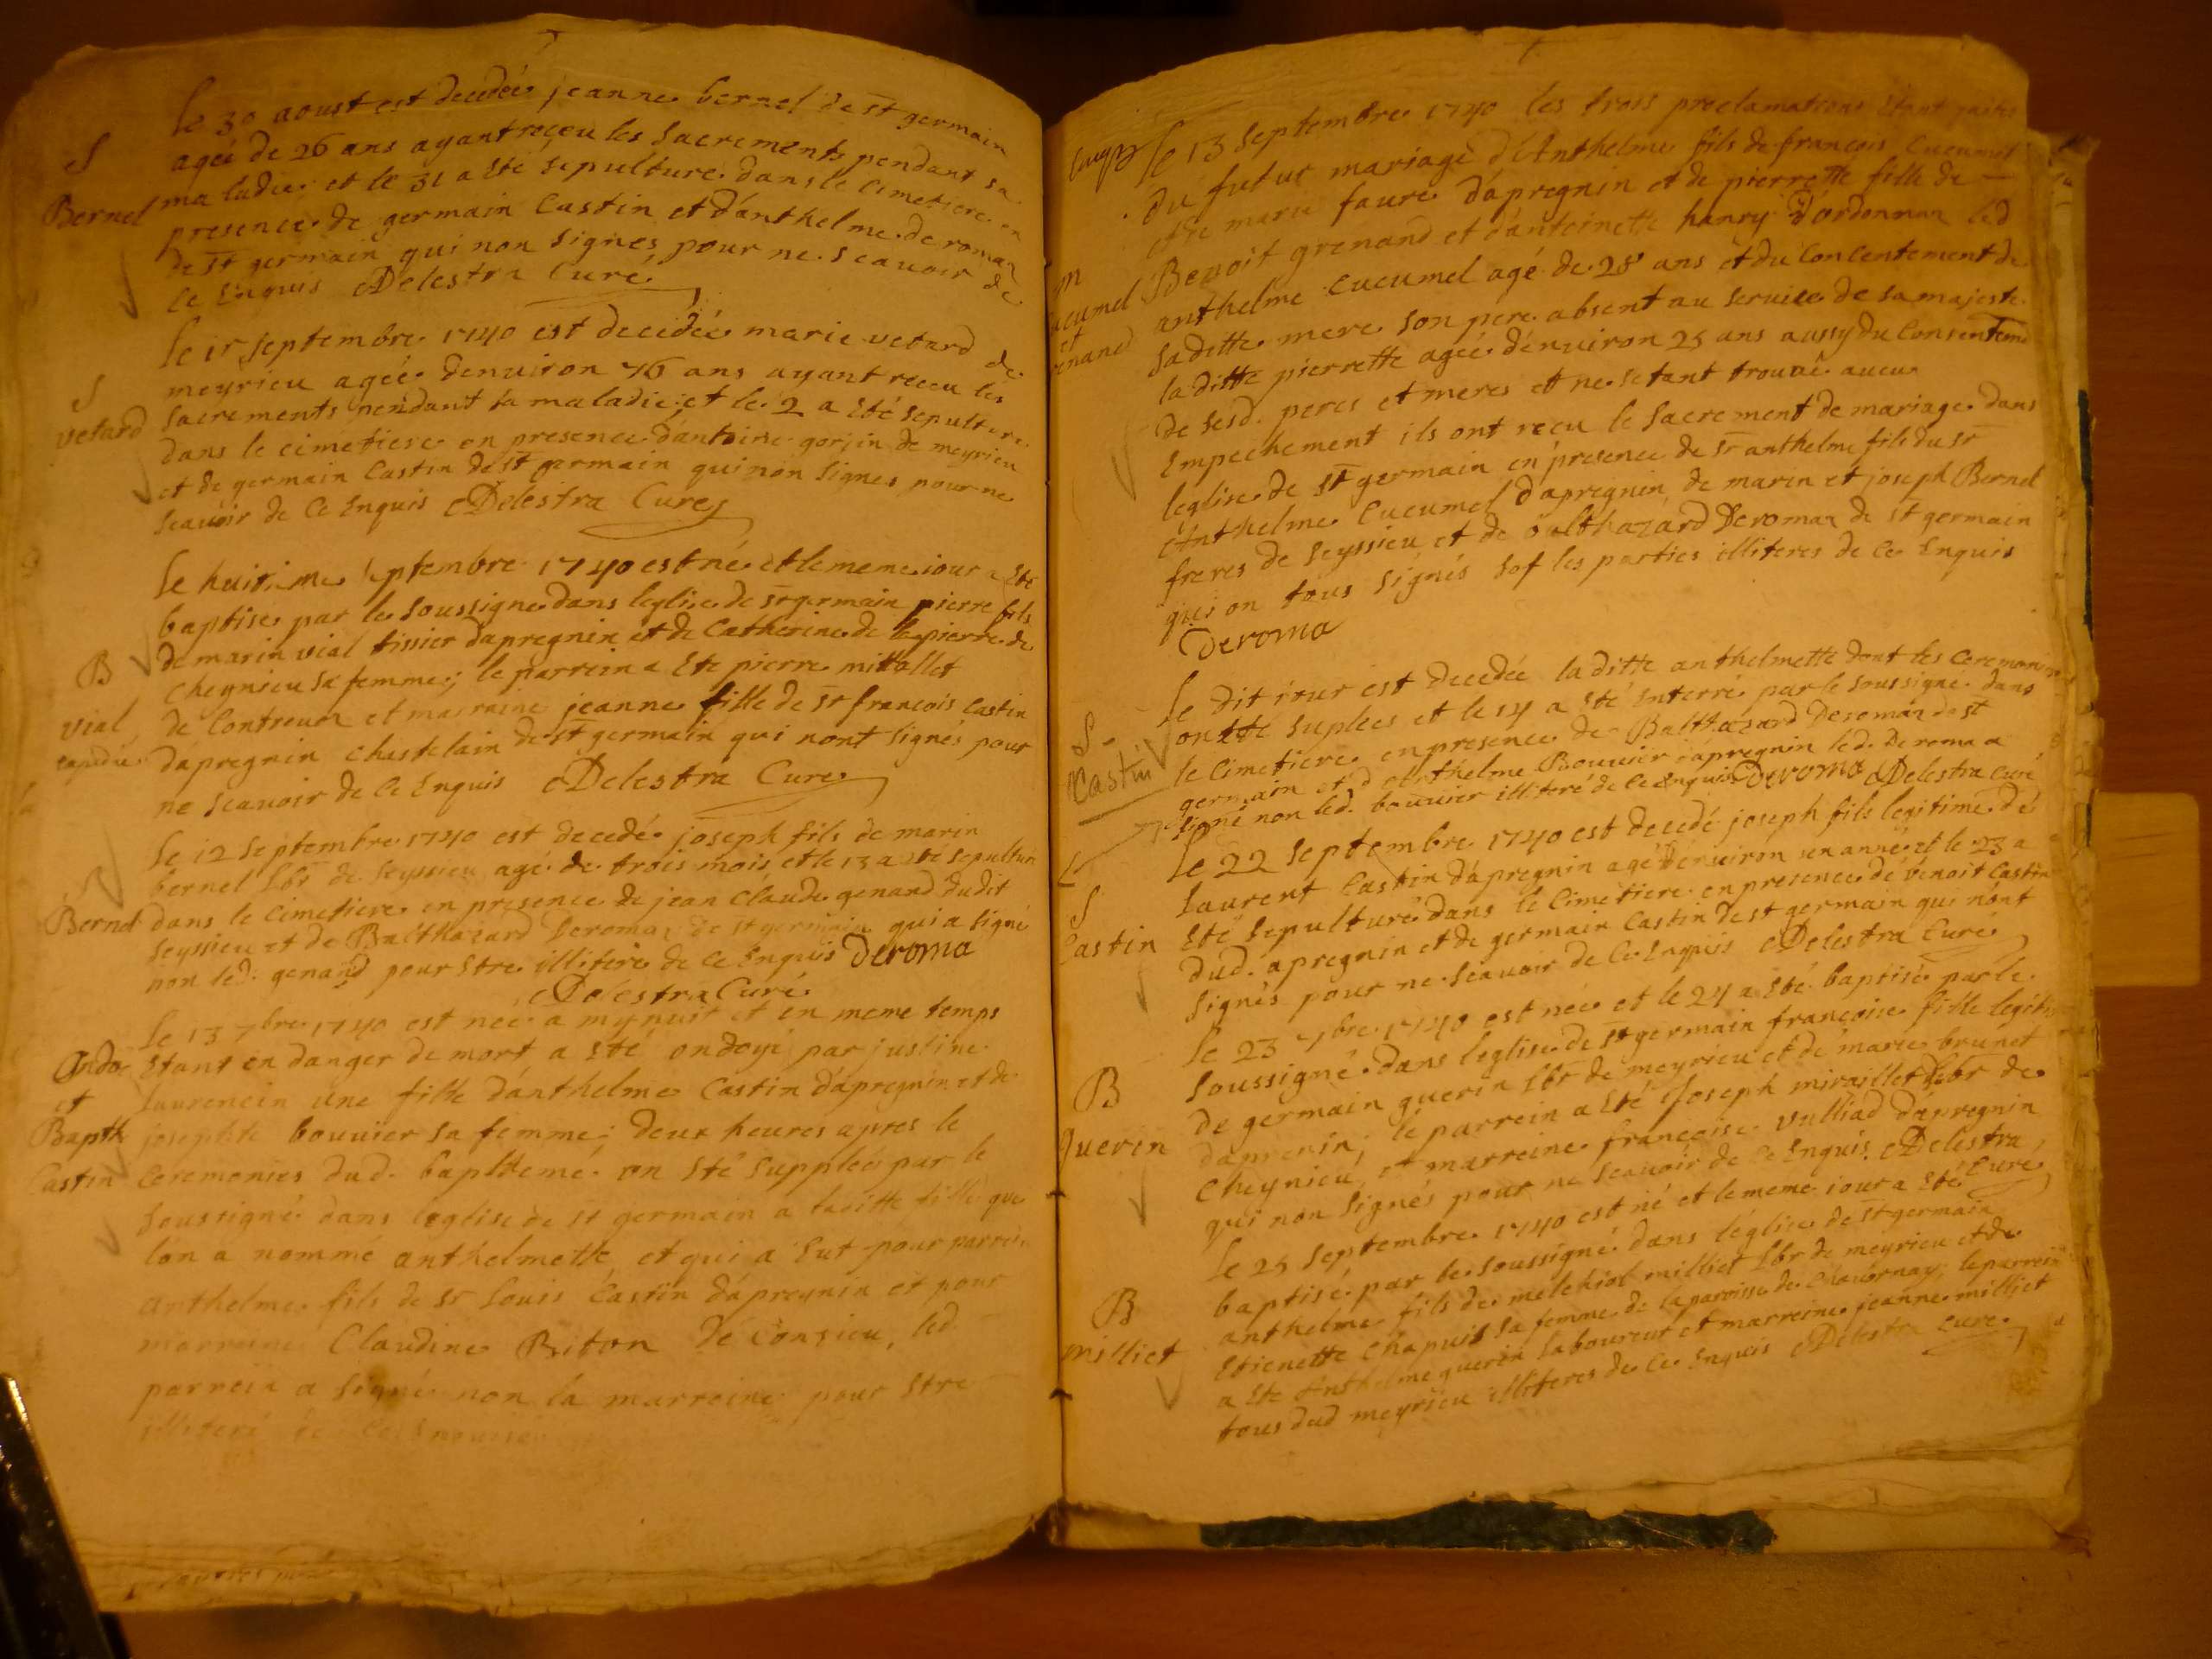 le 30 aoust est decedée jeanne bernel de st germain
S
agée de 26 ans ayant reçeu les Sacrements pendant sa
Bernel
maladie; et le 31 a Eté sepulturé dans le Cimetiere en
presence de germain Castin et d'anthelme deromaz
de st germain qui non signes pour ne scauoir de
ce Enquis Delestra Curé
le 1r septembre 1740 est decedée marie vetard de
meyrieu agée denuiron 76 ans ayant receu les
S
vetard
Sacrements pendant sa maladie; et le 2 a Eté sepulturé
dans le cimetiere en presence d'antoine gorjin de meyrieu
et de germain Castin de st germain qui non signes pour ne
scauoir de Ce Enquis Delestra Curé
le huitieme septembre 1740 est né et le meme iour a Eté
baptise par le soussigne dans leglise de st germain pierre fils
B
de marin vial tissier d'apregnin et de Catherine de lapierre de
Cheynieu sa femme; le parrein a Ete pierre mittallet
vial
de Contreuoz et marraine jeanne fille de sr francois Castin
d'apregnin Chastelain de st germain qui nont signés pour
ne scauoir de Ce Enquis Delestra Curé
le 12 septembre 1740 est decedé joseph fils de marin
bernel lbr de seyssieu agé de trois mois et le 13 a Eté sepulturé
S
Bernel
dans le Cimetiere en presence de jean Claude genand dudit
seyssieu et de Balthazard Deromaz de st germain qui a signé
non led. genand pour Etre illiteré de Ce Enquis Deroma
Delestra Curé
le 13 7bre 1740 est née a mynuit et en meme temps
Ondoie
Etant en danger de mort a Eté ondoyé par justine
et
laurencin une fille d'anthelme Castin d'apregnin et de
Bapth
josephte bouuier sa femme; deux heures apres le
Castin
Ceremonies dud. baptteme on Eté supplées par le
soussigné dans leglise de st germain a laditte fille que
lon a nommé anthelmette et qui a Eut pour parrein
anthelme fils de sr Louis Castin d'apregnin et pour
marreine Claudine Biton de Conzieu, led.
parrein a signé non la marreine pour Etre
illiteré de Ce Enquise
le 13 septembre 1740 les trois proclamations Etant faites
du futur mariage d'Anthelme fils de francois Cucumel
et de marie faure d'apregnin et de pierrette fille de
m
Benoit grenand et d'antoinette hanry d'ordonnaz led
Cucumel
anthelme Cucumel agé de 28 ans et du Concentement de
et
sa ditte mere son pere absent au seruice de sa majeste
grenand
la ditte pierrette agée d'enuiron 25 ans aussy du Consenteme
de sesd. peres et meres et ne setant trouué aucun
Empechement ils ont reçu le Sacrement de mariage dans
leglise de st germain en presence de sr anthelme fils du sr
Anthelme Cucumel d'apregnin de marin et joseph Bernel
freres de seyssieu et de balthazard Deromaz de st germain
qui on tous signés sof les parties illiteres de Ce Enquis
Deroma
le dit iour est decedée la ditte anthelmette dont les Ceremonies
S
ont Eté suplees et le 14 a Eté Enterré par le soussigné dans
Castin
le Cimetiere en presence de Balthazard Deromaz de st
germain et d'anthelme Bouuier d'apregnin led. Deroma a
signé non led. bouuier illiteré de Ce Enquis Deroma Delestra Curé
le 22 septembre 1740 est decedé joseph fils legitime de
S
laurent Castin d'apregnin agé d'enuiron un anné et le 23 a
Castin
Eté sepulturé dans le Cimetiere en presence de benoit Castin
dud. apregnin et de germain Castin de st germain qui nont
signés pour ne scauoir de Ce Enquis Delestra Curé
le 23 7bre 1740 est née et le 24 a Eté baptisé par le
B
soussigné dans leglise de st germain francoise fille legitime
Guerin
de germain guerin lbr de meyrieu et de marie brunet
daprenin; le parrein a Eté Joseph miraillet lbr de
Cheynieu, et marreine francoise vulliad d'apregnin
qui non signés pour ne scauoir de Ce Enquis Delestra
Curé
le 25 septembre 1740 est né et le meme iour a Eté
B
baptisé par le soussigné dans léglise de st germain
milliet
anthelme fils de melchiol milliet lbr de meyrieu et de
Etienette Chapuis sa femme de la paroisse de Chauornay; le parrein
a Ete Anthelme guerin laboureur et marreine jeanne milliet
tous dud meyrieu illiteres de Ce Enquis Delestra Curé